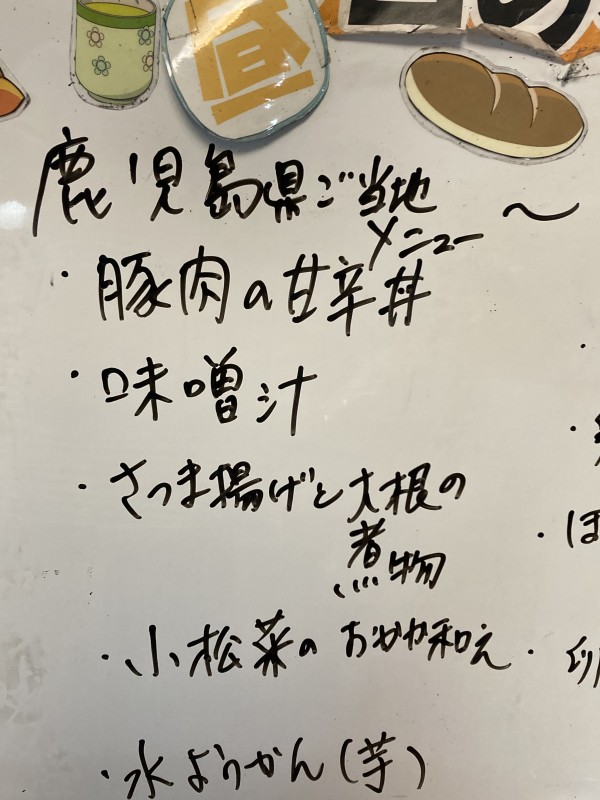 昼
鹿児島県ご当地 〜
メニュー
・豚肉の甘辛丼
・味噌汁
・さつま揚げと大根の
煮物
・小松菜のおかか和え
・水ようかん(芋)
・
・
・ほ
・